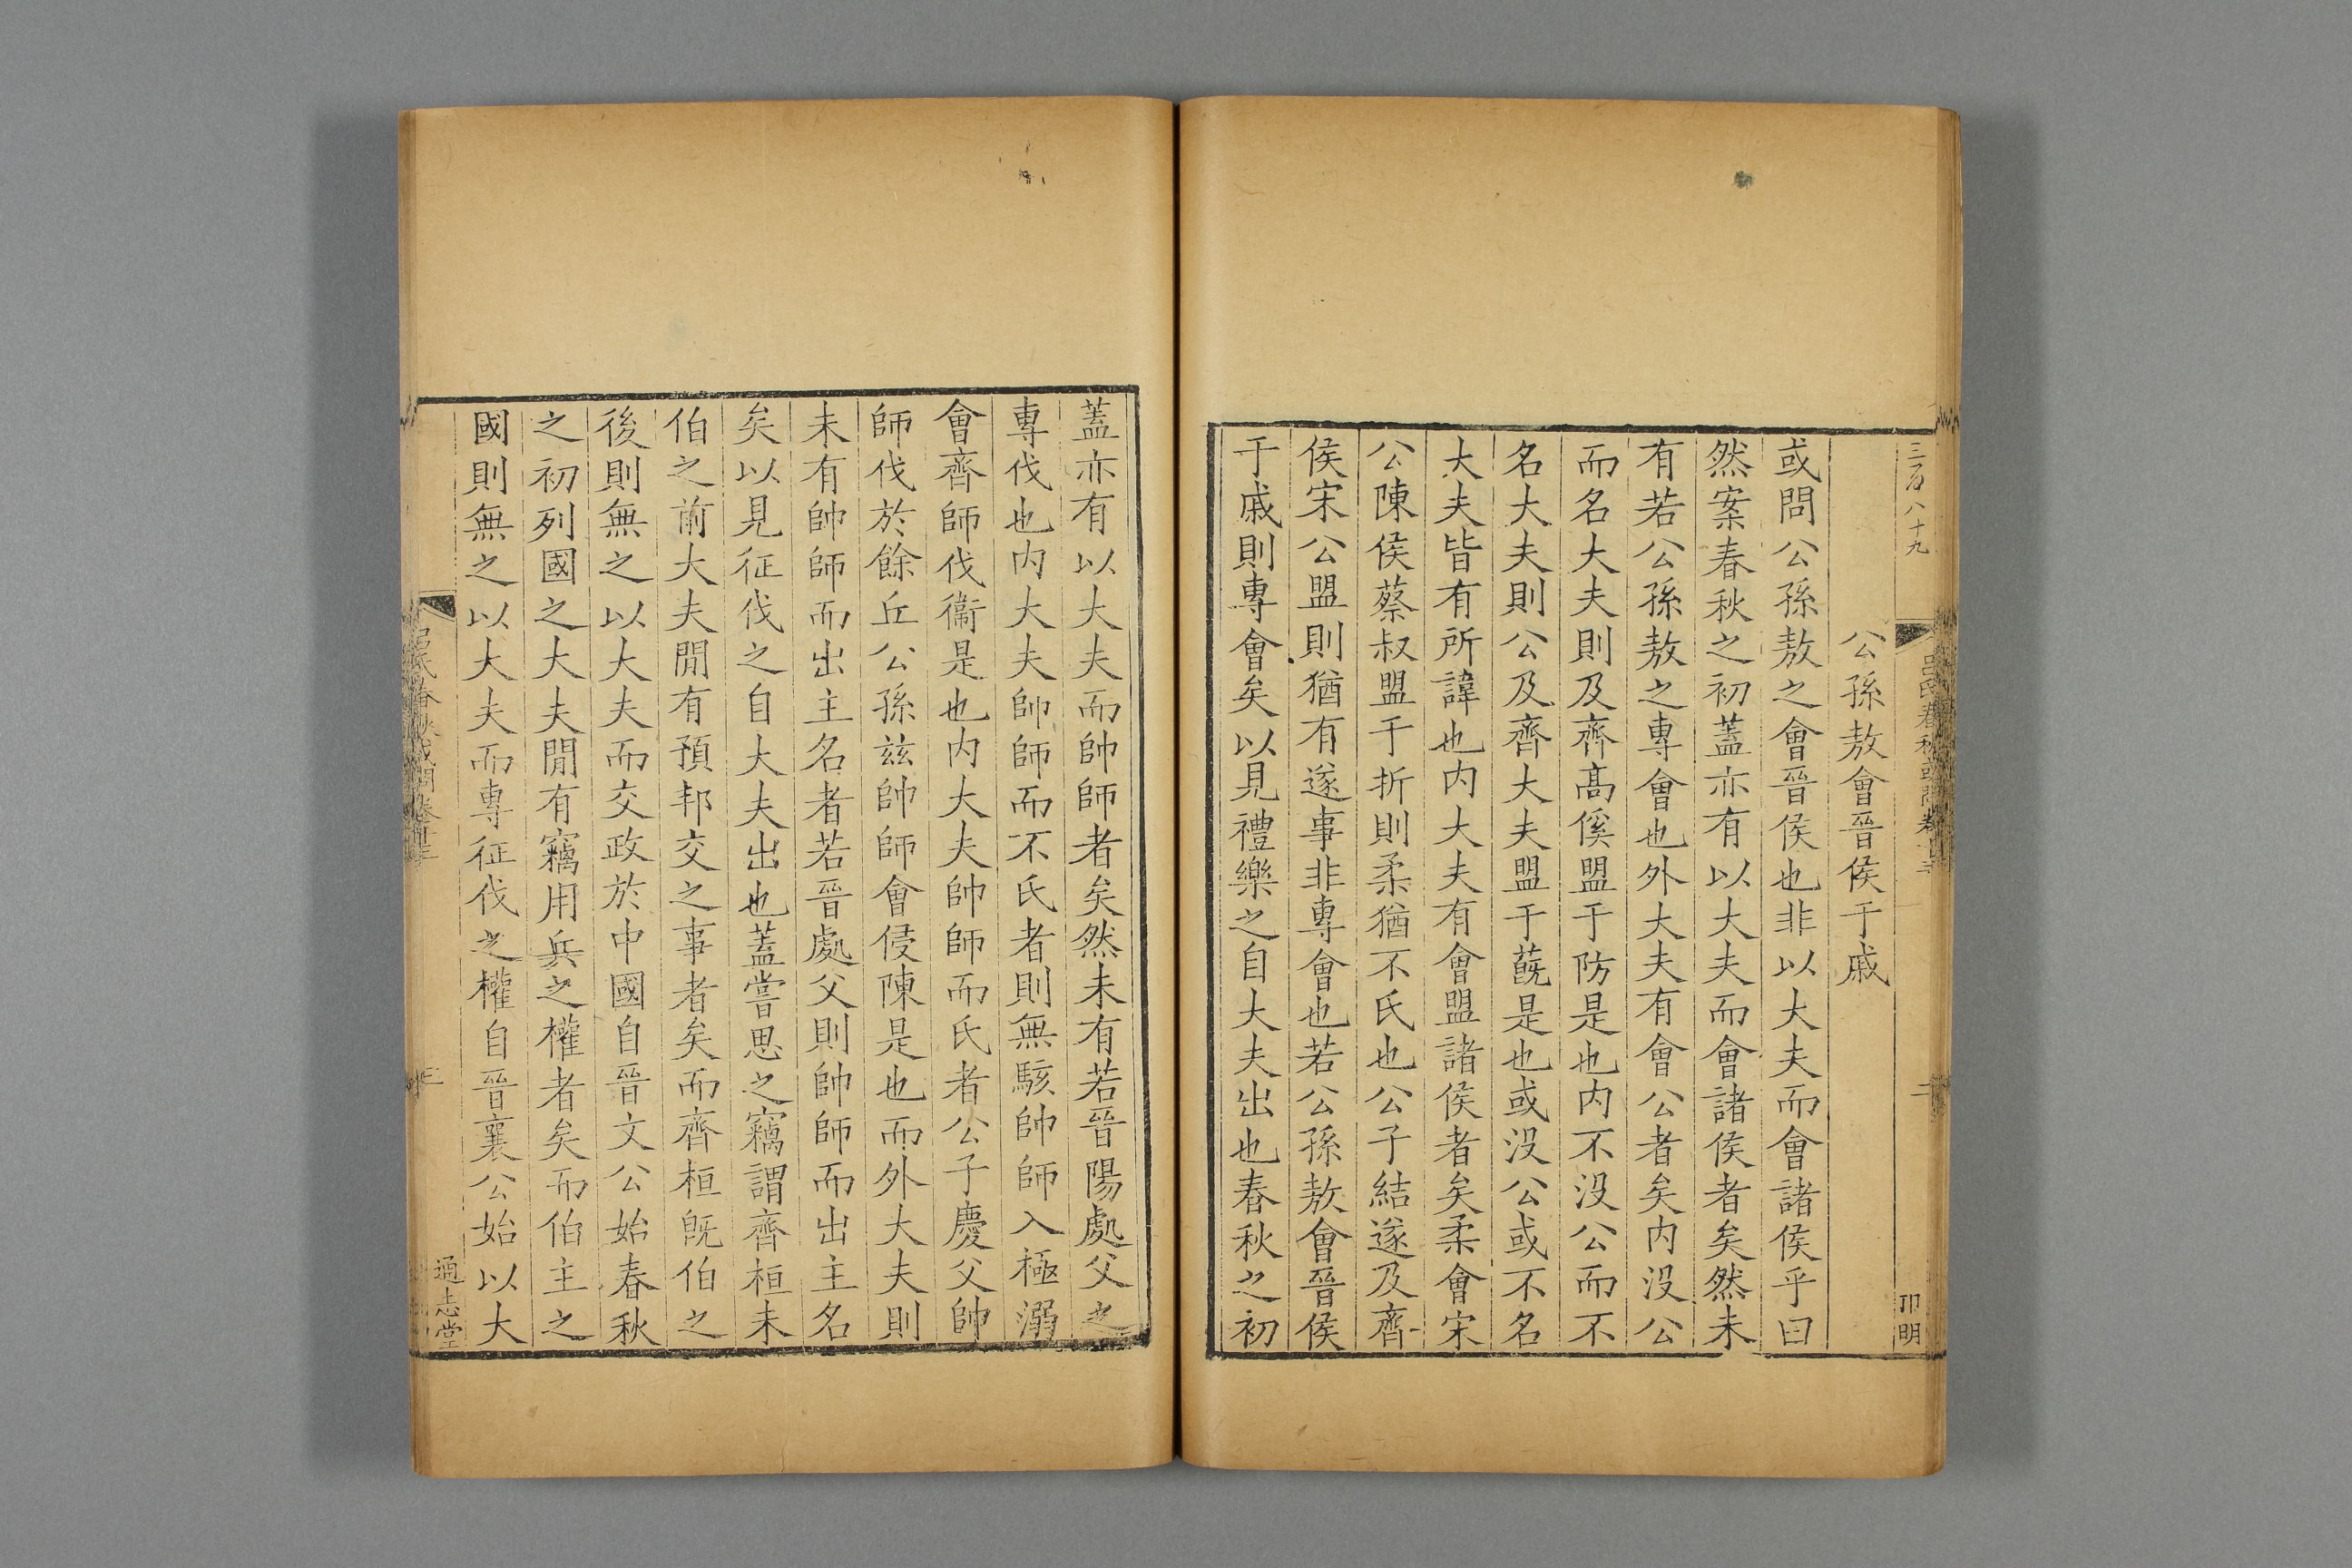 三百八十九
呂氏春秋或問卷
二
卭明
公孫敖會晉侯于戚
或問公孫敖之會晉侯也非以大夫而會諸侯乎曰
然案春秋之初蓋亦有以大夫而會諸侯者矣然未
有若公孫敖之專會也外大夫有會公者矣内没公
而名大夫則及齊髙傒盟于防是也内不没公而不
名大夫則公及齊大夫盟于蔇是也或没公或不名
大夫皆有所諱也内大夫有會盟諸侯者矣柔會宋
公陳侯蔡叔盟于折則柔猶不氏也公子結遂及齊
侯宋公盟則猶有遂事非專會也若公孫敖會晉侯
于戚則專會矣以見禮樂之自大夫出也春秋之初
蓋亦有以大夫而帥師者矣然未有若晉陽處父之
專伐也内大夫帥師而不氏者則無駭帥師入極溺
會齊師伐衞是也内大夫帥師而氏者公子慶父帥
師伐於餘丘公孫兹帥師會侵陳是也而外大夫則
未有帥師而出主名者若晉處父則帥師而出主名
矣以見征伐之自大夫出也蓋嘗思之竊謂齊桓未
伯之前大夫閒有預邦交之事者矣而齊桓既伯之
後則無之以大夫而交政於中國自晉文公始春秋
之初列國之大夫閒有竊用兵之權者矣而伯主之
國則無之以大夫而專征伐之權自晉襄公始以大
呂氏春秋或問卷
三
通志堂